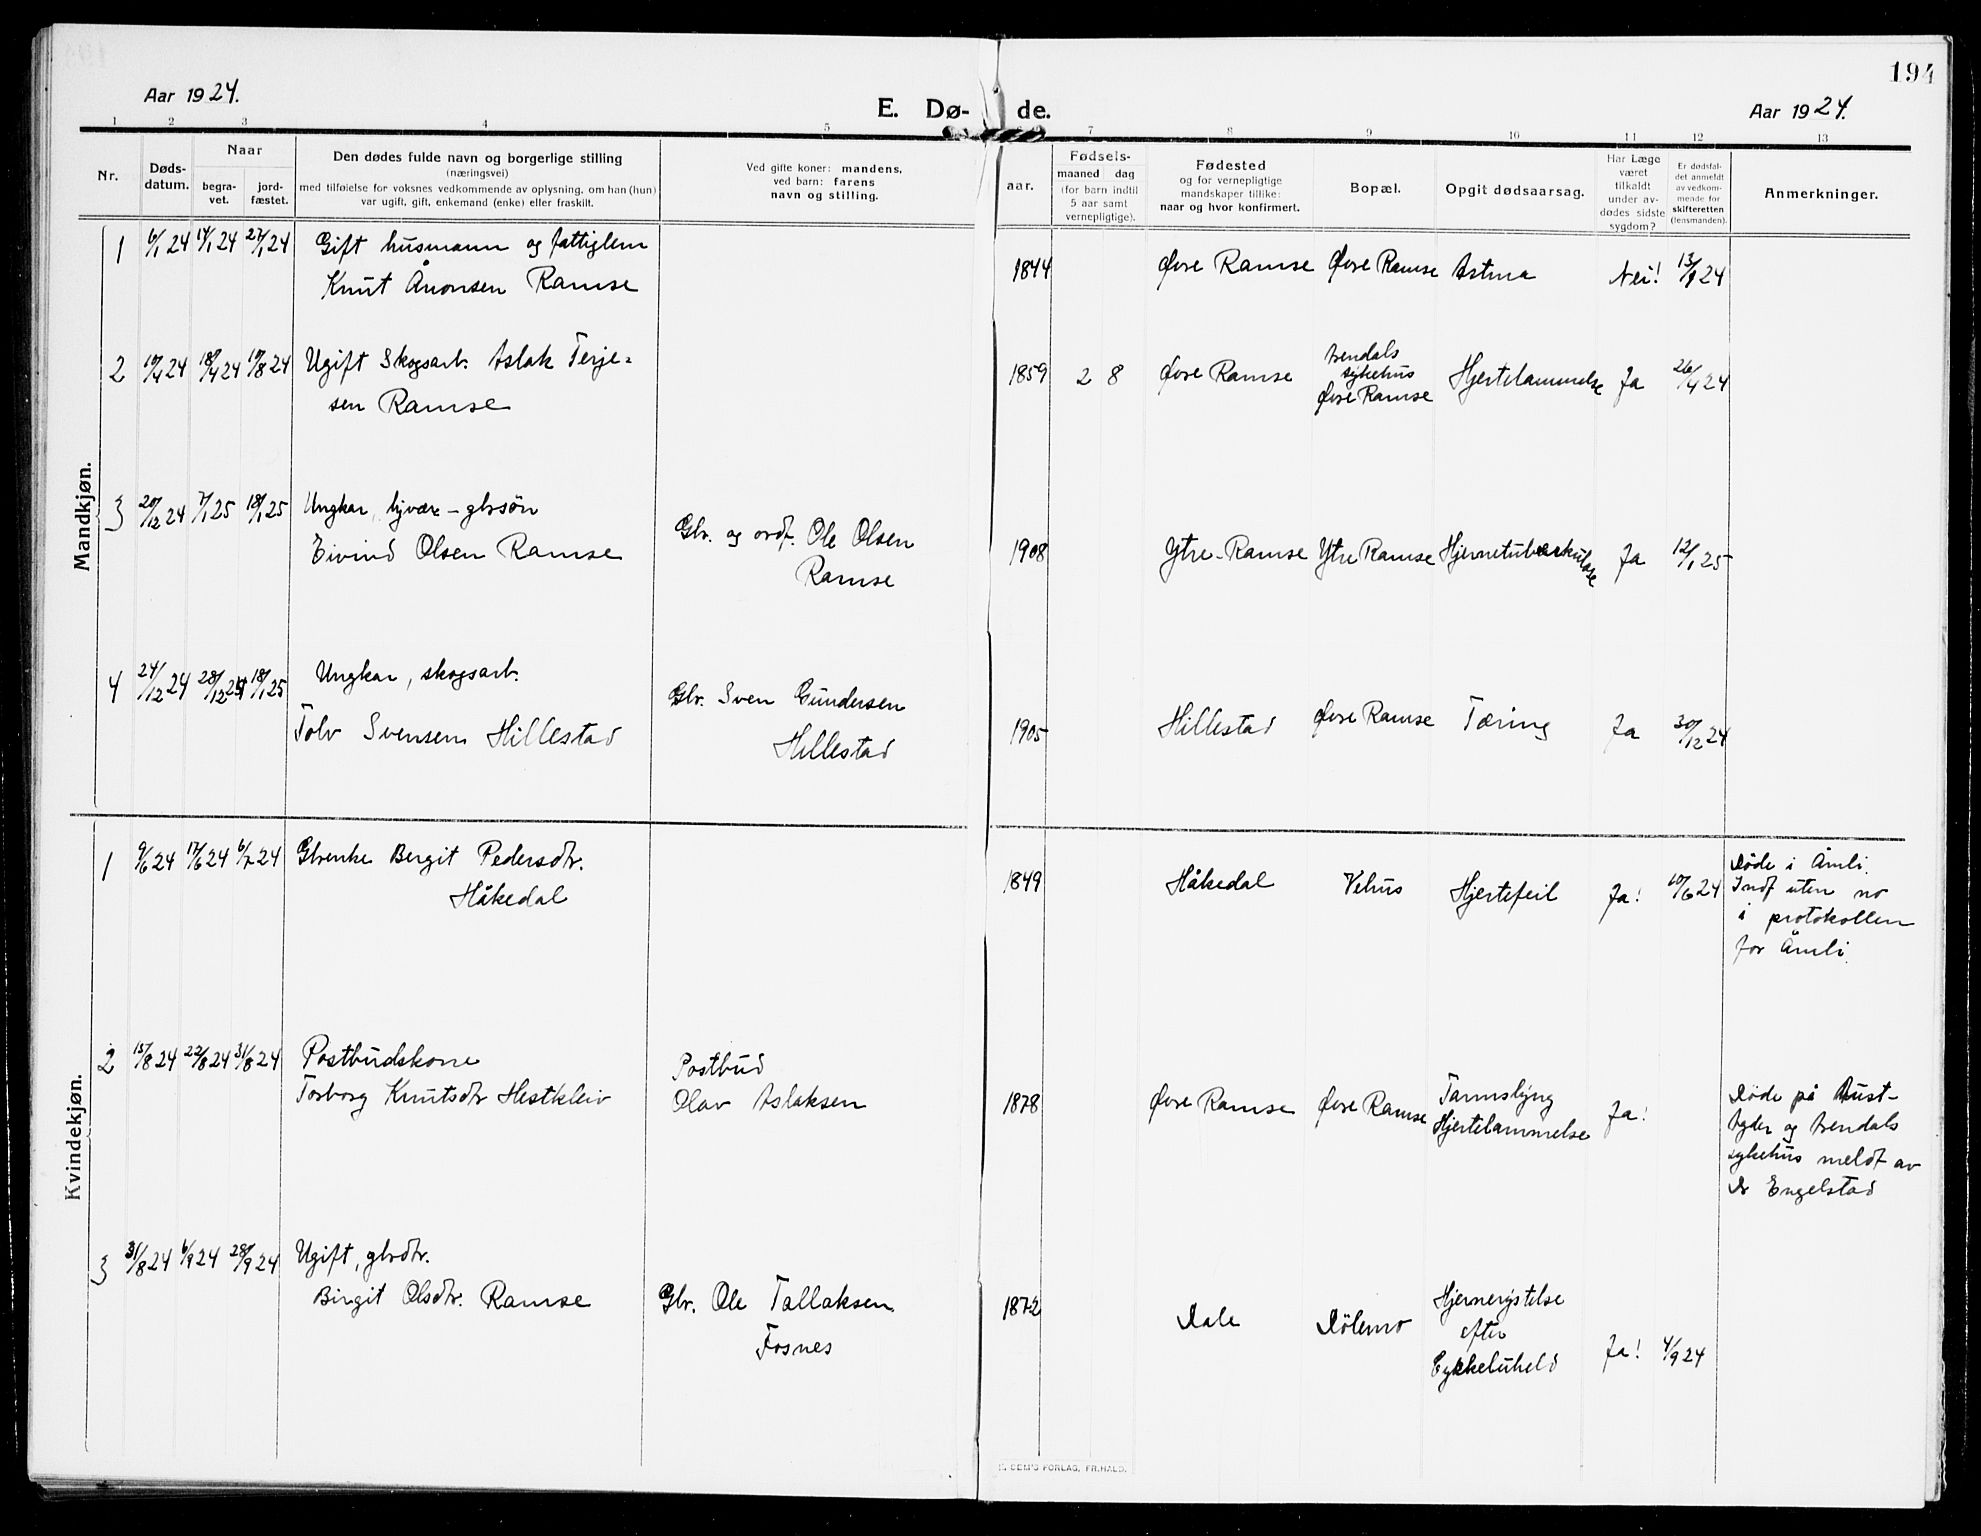 194
Aar 1924.
E. Dø- de.
Aar 1924.
1 2 3 4 5 7 8 9 10 11 12 13
Nr.
Døds-
datum.
Naar
begra-
vet.
jord-
fæstet.
Den dødes fulde navn og borgerlige stilling
(næringsvei)
med tilføielse for voksnes vedkommende av oplysning, om han (hun)
var ugift, gift, enkemand (enke) eller fraskilt.
Ved gifte koner: mandens,
ved barn: farens
navn og stilling.
aar.
Fødsels-
maaned dag
(for barn indtil
5 aar samt
vernepligtige).
Fødested
og for vernepligtige
mandskaper tillike:
naar og hvor konfirmert.
Bopæl.
Opgit dødsaarsag.
Har Læge
været
tilkaldt
under av-
dødes sidste
sygdom?
Er dødsfal-
det anmeldt
av vedkom-
mende for
skifteretten
(lensmanden).
Anmerkninger.
Mandkjøn.
1 6/1 24 14/1 24 27/1 24 Gift husmann og fattiglem
Knut Ånonsen Ramse
1844 Øvre Ramse Øvre Ramse Astma Nei! 13/1 24
2 10/4 24 18/4 24 17/8 24 Ugift Skogsarb. Aslak Terje-
sen Ramse
1859 2 8 Øvre Ramse
Arendals
sykehus
Øvre Ramse
Hjertelammelse Ja 26/4 24
3 20/12 24 7/1 25 18/1 25 Ungkar, - gbrsøn
Eivind Olsen Ramse
Gbr. og ordf. Ole Olsen
Ramse
1908 Ytre-Ramse Ytre Ramse Hjernetuberkulose Ja 12/1 25
4 24/12 24 28/12 24 18/1 25 Ungkar, skogsarb.
Tolv Svensen Hillestad
Gbr. Sven Gundersen
Hillestad
1905 Hillestad Øvre Ramse Tæring Ja 30/12 24
Kvindekjøn.
1 9/6 24 17/6 24 6/7 24 Gbrenke Bergit Pedersdtr.
Håkedal
1849 Håkedal Vehus Hjertefeil Ja! 10/6 24
Døde i Åmli.
Indf uten no
i protokollen
for Åmli.
2 15/8 24 22/8 24 31/8 24 Postbudskone
Torborg Knutsdtr Hestkleiv
Postbud
Olav Aslaksen
1878 Øvre Ramse Øvre Ramse
Tarmslyng
Hjertelammelse
Ja!
Døde på Aust-
Agder og Arendals
sykehus meldt av
Dr Engelstad
3 31/8 24 6/9 24 28/9 24 Ugift, gbrdtr.
Birgit Olsdtr. Ramse
Gbr. Ole Tallaksen
Fosnes
1872 Dale Dølemo
Hjernerystelse
efter
Cykkeluheld
Ja! 4/9 24
FORLAG, FR. HALD.